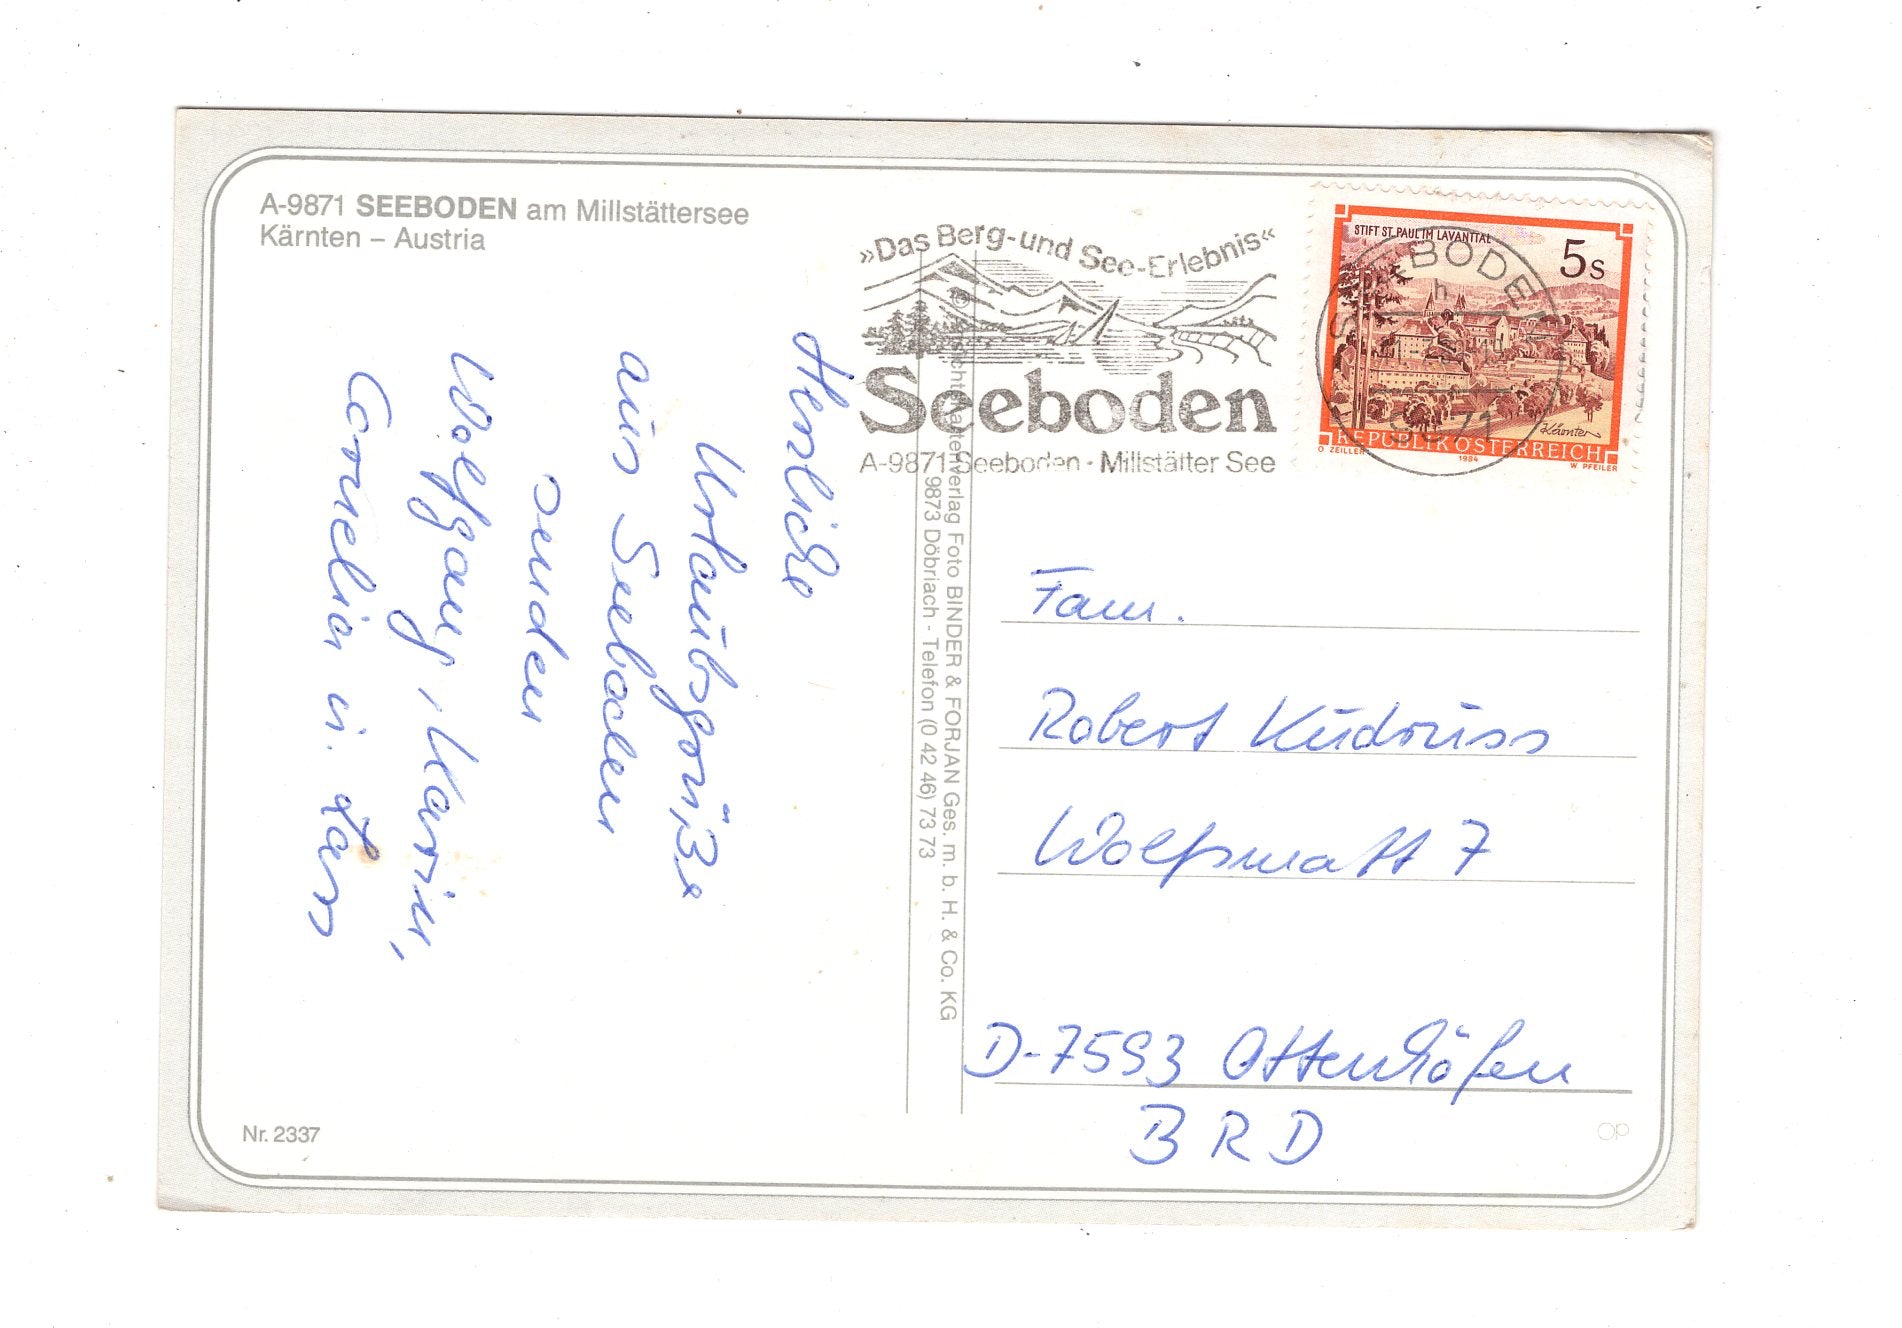 A-9871 SEEBODEN am Millstättersee
Kärnten – Austria
»Das Berg-und See-Erlebnis«
Seeboden
A-9871 Seeboden · Millstätter See
STIFT ST. PAUL IM LAVANTTAL
5s
Kärnten
REPUBLIK ÖSTERREICH
O ZEILLER
1984
W. PFEILER
SEEBODEN
h
9871
Herzliche
Urlaubsgrüße
aus Seeboden
senden
Wolfgang, Karin,
Cornelia u. Lars
Verlag Foto BINDER & FORJAN Ges. m. b. H. & Co. KG
9873 Döbriach - Telefon (0 42 46) 73 73
Fam.
Robert Kudruss
Wolfsmatt 7
D-7593 Ottenhöfen
BRD
Nr. 2337
OP